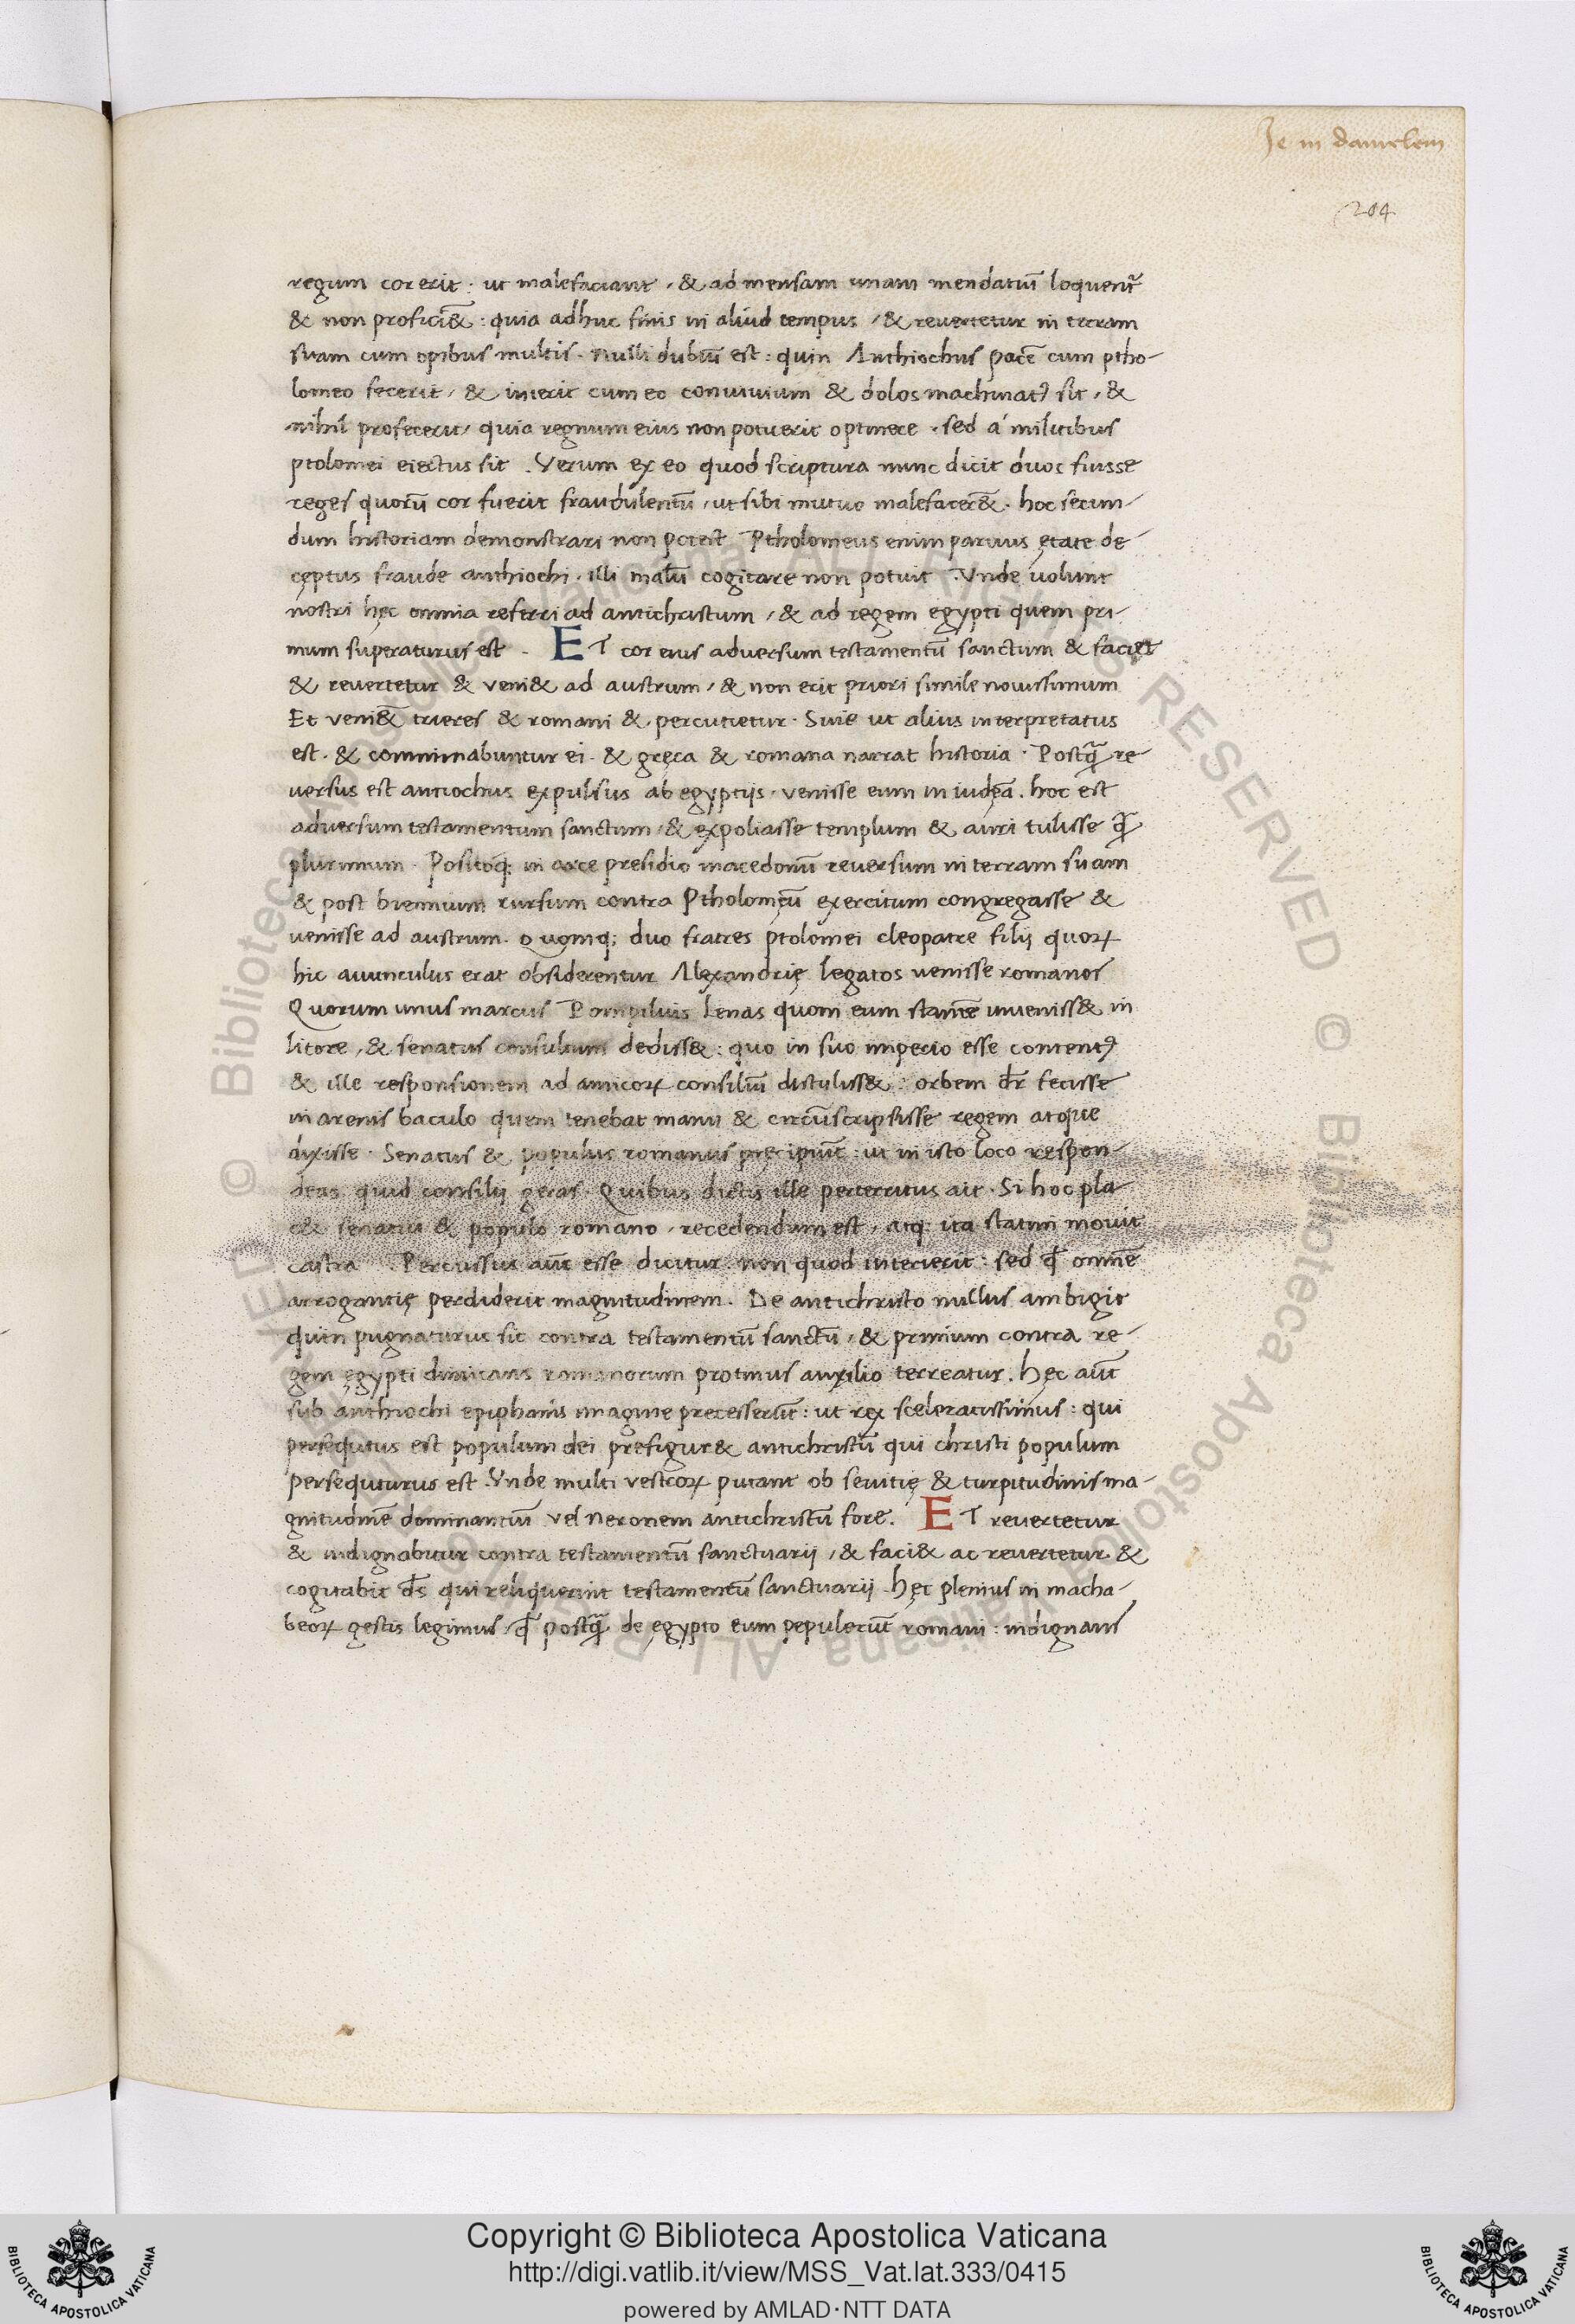 Je in danielem
204
regum cor erit : ut malefaciant , & ad mensam unam mendatiū loquent᷑
& non profici&̄ : quia adhuc finis in aliud tempus , & revertetur in terram
suam cum opibus multis . Nulli dubiū est : quin Anthiochus pacē cum ptho-
lomeo fecerit , & inierit cum eo convivium & dolos machinatꝰ sit , &
nihil profecerit , quia regnum eius non potuerit optinere . sed á militibus
ptolomei eiectus sit . Verum ex eo quod scriptura nunc dicit duos fuisse
reges quorū cor fuerit fraudulentū , ut sibi mutuo malefacer&̄ . hoc secun-
dum historiam demonstrari non potest Ptholomeus enim parvus ętate de-
cęptus fraude anthiochi . illi malū cogitare non potuit . Vnde volunt
nostri hęc omnia referri ad antichristum , & ad regem egypti quem pri-
mum superaturus est . ET cor eius adversum testamentū sanctum & faciet
& revertetur & veni& ad austrum , & non erit priori simile novissimum
Et veni&̄ trieres & romani & percutietur . Sive ut alius interpretatus
est . & comminabuntur ei . & gręca & romana narrat historia . Postq̄ re-
versus est antiochus expulsus ab egyptijs . venisse eum in iudęā . hoc est
adversum testamentum sanctum , & expoliasse templum & auri tulisse q̄
plurimum . Positoq; in arce presidio macedonū reversum in terram suam
& post biennium rursum contra Ptholomęū exercitum congregasse &
venisse ad austrum . Quomq; duo fratres ptolomei cleopatre filij quoꝝ
hic avunculus erat obsiderentur Alexandrię legatos venisse romanos
Quorum unus marcus Pompilius Lenas quom eum stantē inveniss& in
litore , & senatus consultum dediss& : quo in suo imperio esse contentꝰ
& ille responsionem ad amicoꝝ consiliū distuliss& : orbem dr̄ fecisse
in arenis baculo quem tenebat manu & circūscripsisse regem atque
dixisse . Senatus & populus romanus pręcipiūt : ut in isto loco respon-
deas quid consilij geras . Quibus dictis ille perterritus ait . Si hoc pla-
c& senatui & populo romano , recedendum est , atq; ita statim movit
castra . Percussus aūt esse dicitur non quod interierit : sed q̄ omnē
arrogantię perdiderit magnitudinem . De antichristo nullus ambigit
quin pugnaturus sit contra testamentū sanctū , & primum contra re-
gem ęgypti dimicans romanorum protinus auxilio terreatur . Hęc aūt
sub anthiochi epiphanis imagine precesserūt : ut rex sceleratissimus : qui
persequtus est populum dei prefigur& antichristū qui christi populum
persequturus est . Vnde multi vestroꝝ putant ob sevitię & turpitudinis ma-
gnitudinē dominantiū vel Neronem antichristū fore . ET revertetur
& indignabitur contra testamentū sanctuarij , & faci& ac revertetur &
cogitabit ds̄ qui reliquerunt testamentū sanctuarij . Hęc plenius in macha-
beoꝝ gestis legimus , q̄ postq̄ de ęgypto eum pepulerūt romani : indignans
© Biblioteca Apostolica Vaticana ALL RIGHTS RESERVED © Biblioteca Apostolica Vaticana ALL RIGHTS RESERVED
Copyright © Biblioteca Apostolica Vaticana
http://digi.vatlib.it/view/MSS_Vat.lat.333/0415
powered by AMLAD·NTT DATA
BIBLIOTECA APOSTOLICA VATICANA
BIBLIOTECA APOSTOLICA VATICANA